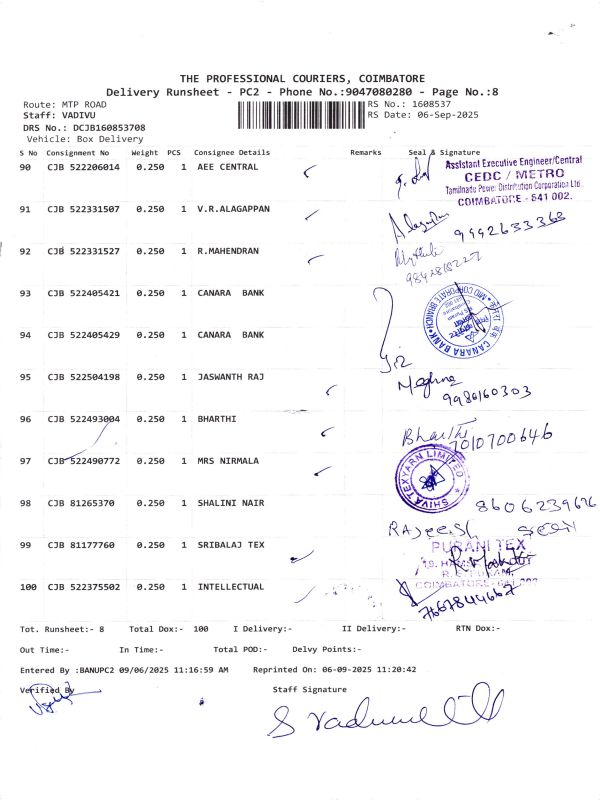 THE PROFESSIONAL COURIERS, COIMBATORE
Delivery Runsheet - PC2 - Phone No.:9047080280 - Page No.:8
Route: MTP ROAD
RS No.: 1608537
Staff: VADIVU
RS Date: 06-Sep-2025
DRS No.: DCJB160853708
Vehicle: Box Delivery
S No Consignment No Weight PCS Consignee Details Remarks Seal & Signature
90 CJB 522206014 0.250 1 AEE CENTRAL
Assistant Executive Engineer/Central
CEDC / METRO
Tamilnadu Power Distribution Corporation Ltd
COIMBATORE - 641 002.
91 CJB 522331507 0.250 1 V.R.ALAGAPPAN
Alagappan
9992633368
92 CJB 522331527 0.250 1 R.MAHENDRAN
9842818227
93 CJB 522405421 0.250 1 CANARA BANK
CANARA BANK
MID CORPORATE BRANCH
94 CJB 522405429 0.250 1 CANARA BANK
95 CJB 522504198 0.250 1 JASWANTH RAJ
Meghna
9986160303
96 CJB 522493004 0.250 1 BHARTHI
Bharthi
7010700646
97 CJB 522490772 0.250 1 MRS NIRMALA
SHIVA TEXYARN LIMITED
98 CJB 81265370 0.250 1 SHALINI NAIR
8606239626
RAJEESH
99 CJB 81177760 0.250 1 SRIBALAJ TEX
PURANI TEX
COIMBATORE-641 002
100 CJB 522375502 0.250 1 INTELLECTUAL
7667844667
Tot. Runsheet:- 8 Total Dox:- 100 I Delivery:- II Delivery:- RTN Dox:-
Out Time:- In Time:- Total POD:- Delvy Points:-
Entered By :BANUPC2 09/06/2025 11:16:59 AM Reprinted On: 06-09-2025 11:20:42
Verified By
Staff Signature
S Vadivu